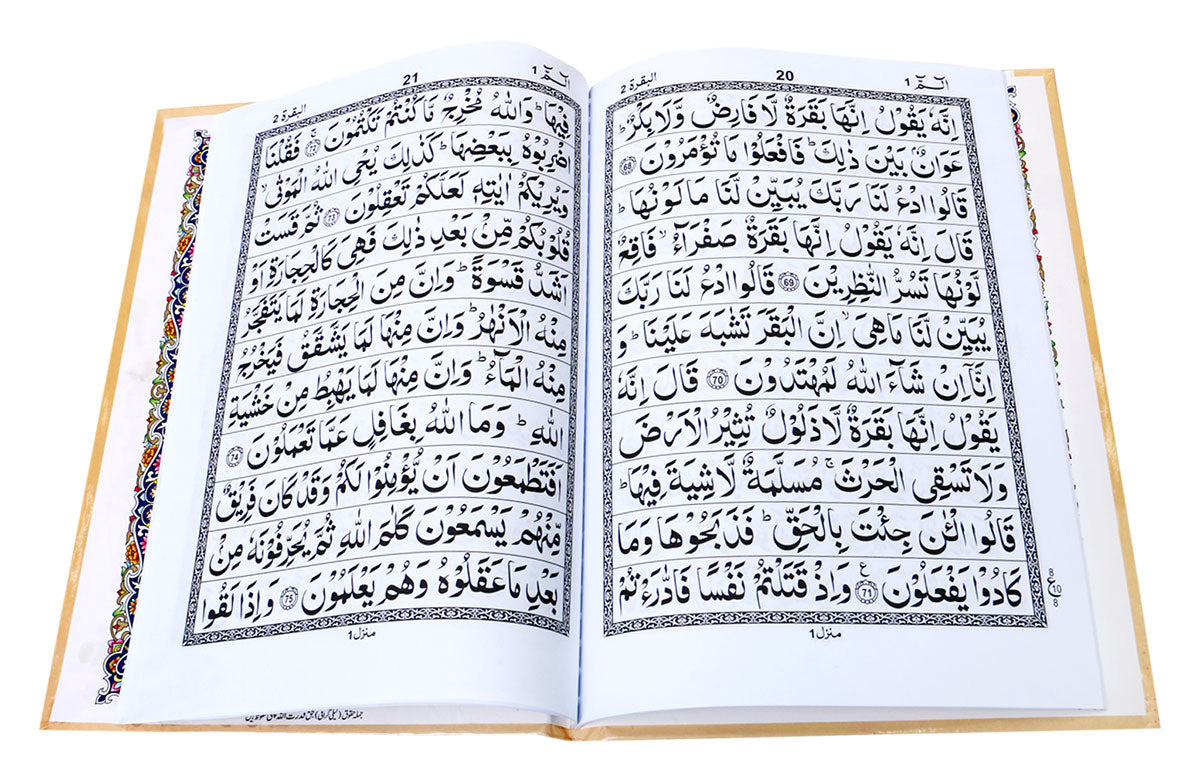 الٓمّٓ ١
20
البقرة ٢
اِنَّهٗ يَقُوْلُ اِنَّهَا بَقَرَةٌ لَّا فَارِضٌ وَّلَا بِكْرٌ ؕ
عَوَانٌۢ بَيْنَ ذٰلِكَ ؕ فَافْعَلُوْا مَا تُؤْمَرُوْنَ 68
قَالُوا ادْعُ لَنَا رَبَّكَ يُبَيِّنْ لَّنَا مَا لَوْنُهَا ؕ
قَالَ اِنَّهٗ يَقُوْلُ اِنَّهَا بَقَرَةٌ صَفْرَآءُ ۙ فَاقِعٌ
لَّوْنُهَا تَسُرُّ النّٰظِرِيْنَ 69 قَالُوا ادْعُ لَنَا رَبَّكَ
يُبَيِّنْ لَّنَا مَا هِىَ ۙ اِنَّ الْبَقَرَ تَشٰبَهَ عَلَيْنَا ؕ وَ
اِنَّاۤ اِنْ شَآءَ اللّٰهُ لَمُهْتَدُوْنَ 70 قَالَ اِنَّهٗ
يَقُوْلُ اِنَّهَا بَقَرَةٌ لَّا ذَلُوْلٌ تُثِيْرُ الْاَرْضَ
وَلَا تَسْقِى الْحَرْثَ ۚ مُسَلَّمَةٌ لَّا شِيَةَ فِيْهَا ؕ
قَالُوا الْـٰٔنَ جِئْتَ بِالْحَقِّ ؕ فَذَبَحُوْهَا وَمَا
كَادُوْا يَفْعَلُوْنَ 71 ع وَاِذْ قَتَلْتُمْ نَفْسًا فَادّٰرَءْتُمْ
8
ع
10
8
منزل ١
الٓمّٓ ١
21
البقرة ٢
فِيْهَا ؕ وَاللّٰهُ مُخْرِجٌ مَّا كُنْتُمْ تَكْتُمُوْنَ ۚ 72 فَقُلْنَا
اضْرِبُوْهُ بِبَعْضِهَا ؕ كَذٰلِكَ يُحْىِ اللّٰهُ الْمَوْتٰى ۙ
وَيُرِيْكُمْ اٰيٰتِهٖ لَعَلَّكُمْ تَعْقِلُوْنَ 73 ثُمَّ قَسَتْ
قُلُوْبُكُمْ مِّنْۢ بَعْدِ ذٰلِكَ فَهِىَ كَالْحِجَارَةِ اَوْ
اَشَدُّ قَسْوَةً ؕ وَاِنَّ مِنَ الْحِجَارَةِ لَمَا يَتَفَجَّرُ
مِنْهُ الْاَنْهٰرُ ؕ وَاِنَّ مِنْهَا لَمَا يَشَّقَّقُ فَيَخْرُجُ
مِنْهُ الْمَآءُ ؕ وَاِنَّ مِنْهَا لَمَا يَهْبِطُ مِنْ خَشْيَةِ
اللّٰهِ ؕ وَمَا اللّٰهُ بِغَافِلٍ عَمَّا تَعْمَلُوْنَ 74
اَفَتَطْمَعُوْنَ اَنْ يُّؤْمِنُوْا لَكُمْ وَقَدْ كَانَ فَرِيْقٌ
مِّنْهُمْ يَسْمَعُوْنَ كَلٰمَ اللّٰهِ ثُمَّ يُحَرِّفُوْنَهٗ مِنْۢ
بَعْدِ مَا عَقَلُوْهُ وَهُمْ يَعْلَمُوْنَ 75 وَاِذَا لَقُوا
منزل ١
جملہ حقوق